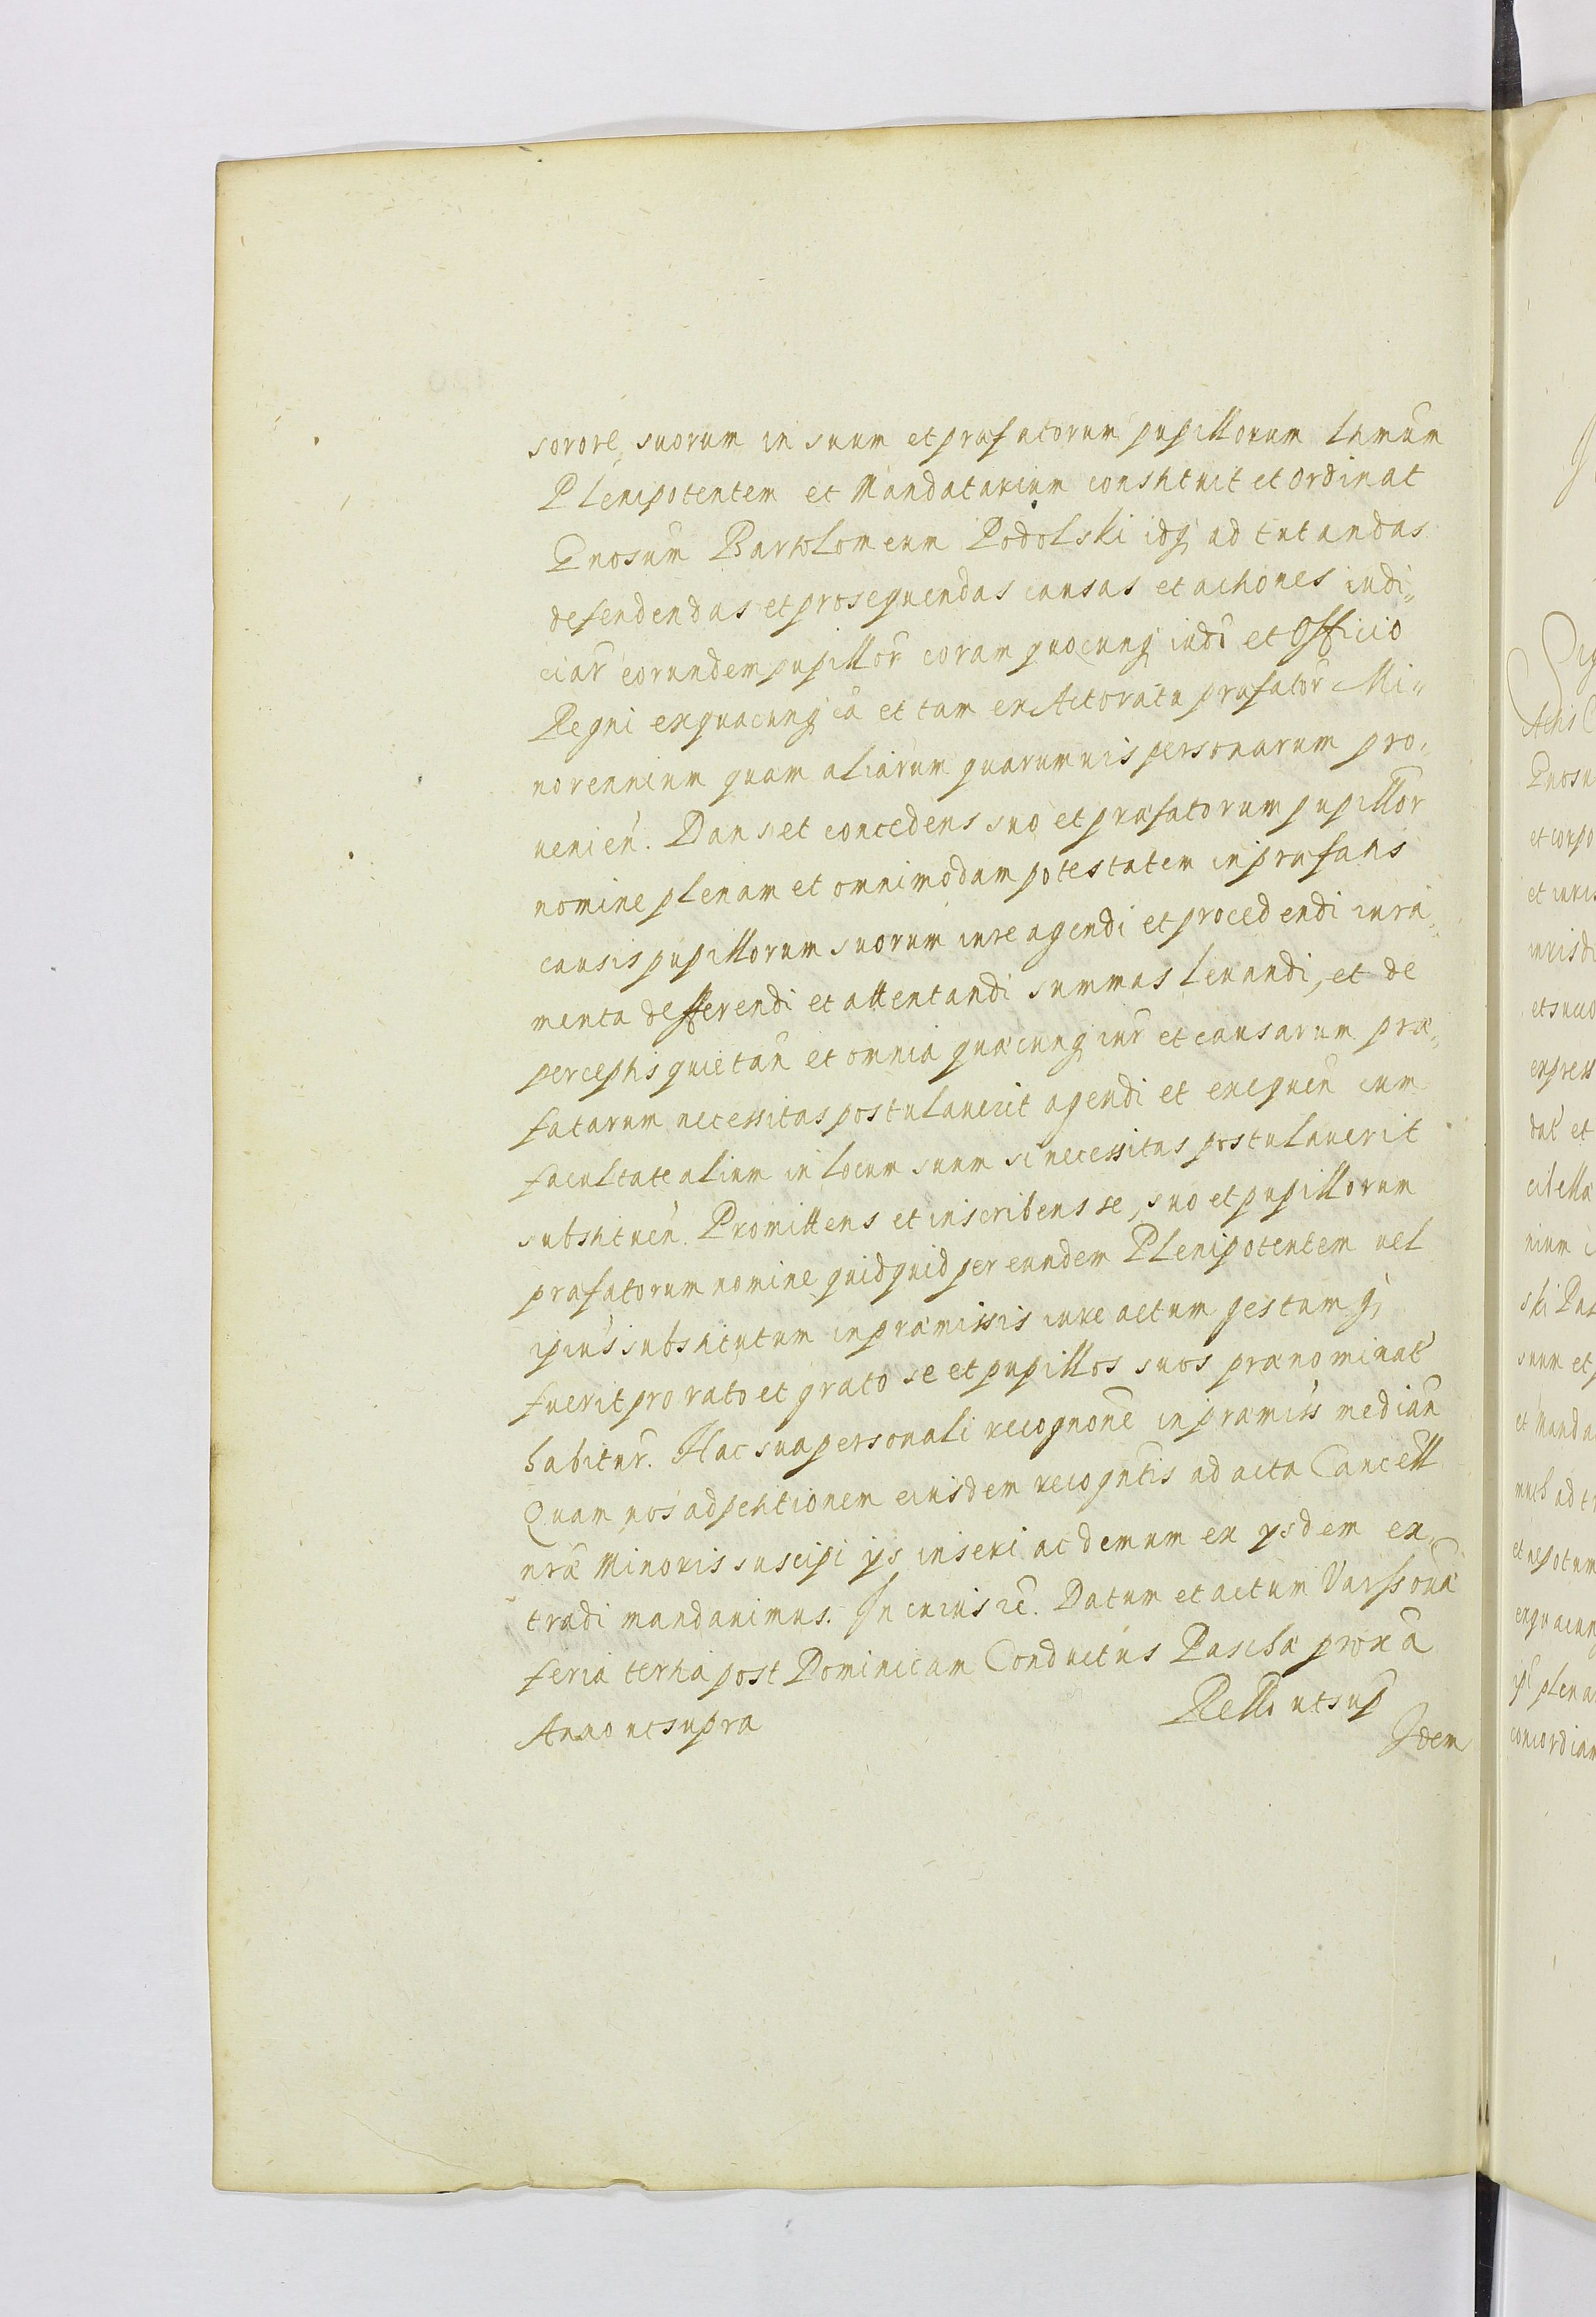 sorore suorum in suum et præfatorum pupillorum Ltmum
Plenipotentem et Mandatarium constituit et ordinat
Gnosum Bartolomeum Podolski idq ad tutandas
defendendas et prosequendas causas et actiones iudi„
ciar eorundem pupillor coram quocunq iudo et Officio
Regni ex quacunq ca et tam ex Actoratu præfator Mi„
norennium quam aliarum quarumuis personarum pro„
uenien. Dans et concedens suo et præfatorum pupillor
nomine plenam et omnimodam potestatem in præfatis
causis pupillorum suorum iure agendi et procedendi iura„
menta defferendi et attentandi summas leuandi, et de
perceptis quietan et omnia quæcunq iur et causarum præ„
fatarum necessitas postulauerit agendi et exequen cum
facultate alium in locum suum si necessitas postulauerit
substituen. Promittens et inscribens se, suo et pupillorum
præfatorum nomine quidquid per eundem Plenipotentem uel
ipius substitutum in præmissis iure actum gestumq,
fuerit pro rato et grato se et pupillos suos prænominat
habitur. Hac sua personali recognone in præmiss median
Quam nos ad petitionem eiusdem recogntis ad acta Cancell
nræ Minoris suscipi ijs inseri ac demum ex ijsdem ex„
tradi mandauimus. In cuius rc. Datum et actum Varssouæ
feria tertia post Dominicam Conductus Paschæ proxa
Anno ut supra
Rello ut sup
Idem